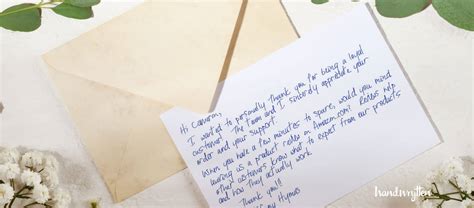 Hi Cameron,
I wanted to personally thank you for being a loyal
customer! The team and I sincerely appreciate your
order and your support.
When you have a few minutes to spare, would you mind
leaving us a product review on Amazon.com? Reviews help
other customers know what to expect from our products
and how they actually work.
Thank you!
handwrytten